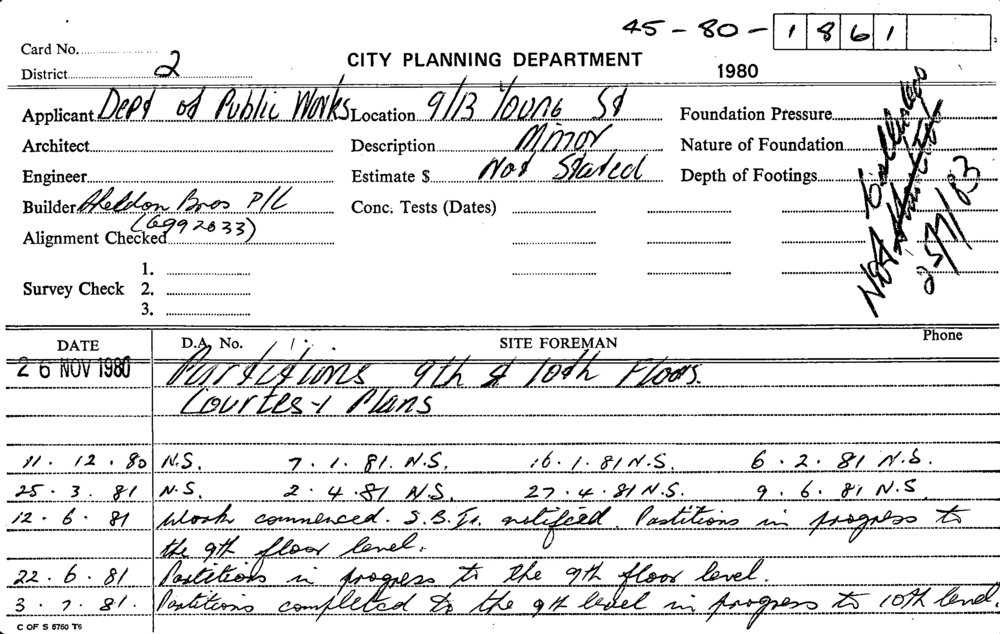 45-80-1861
Card No.
District 2
CITY PLANNING DEPARTMENT
1980
Applicant Dept of Public Works Location 9/13 Young St Foundation Pressure
Architect Description Minor Nature of Foundation
Engineer Estimate $ Not Stated Depth of Footings
Builder Sheldon Bros P/L Conc. Tests (Dates)
(6992033)
Alignment Checked
1.
Survey Check 2.
3.
Not
25/7/83
DATE D.A. No. SITE FOREMAN Phone
26 NOV 1980 Partitions 9th & 10th Floors.
Courtesy Plans
11.12.80 N.S. 7.1.81. N.S. 16.1.81 N.S. 6.2.81 N.S.
25.3.81 N.S. 2.4.81 N.S. 27.4.81 N.S. 9.6.81 N.S.
12.6.81 Work commenced. S.B.I. notified. Partitions in progress to
the 9th floor level.
22.6.81 Partitions in progress to the 9th floor level.
3.7.81. Partitions completed to the 9th level in progress to 10th level.
C OF S 5760 T6